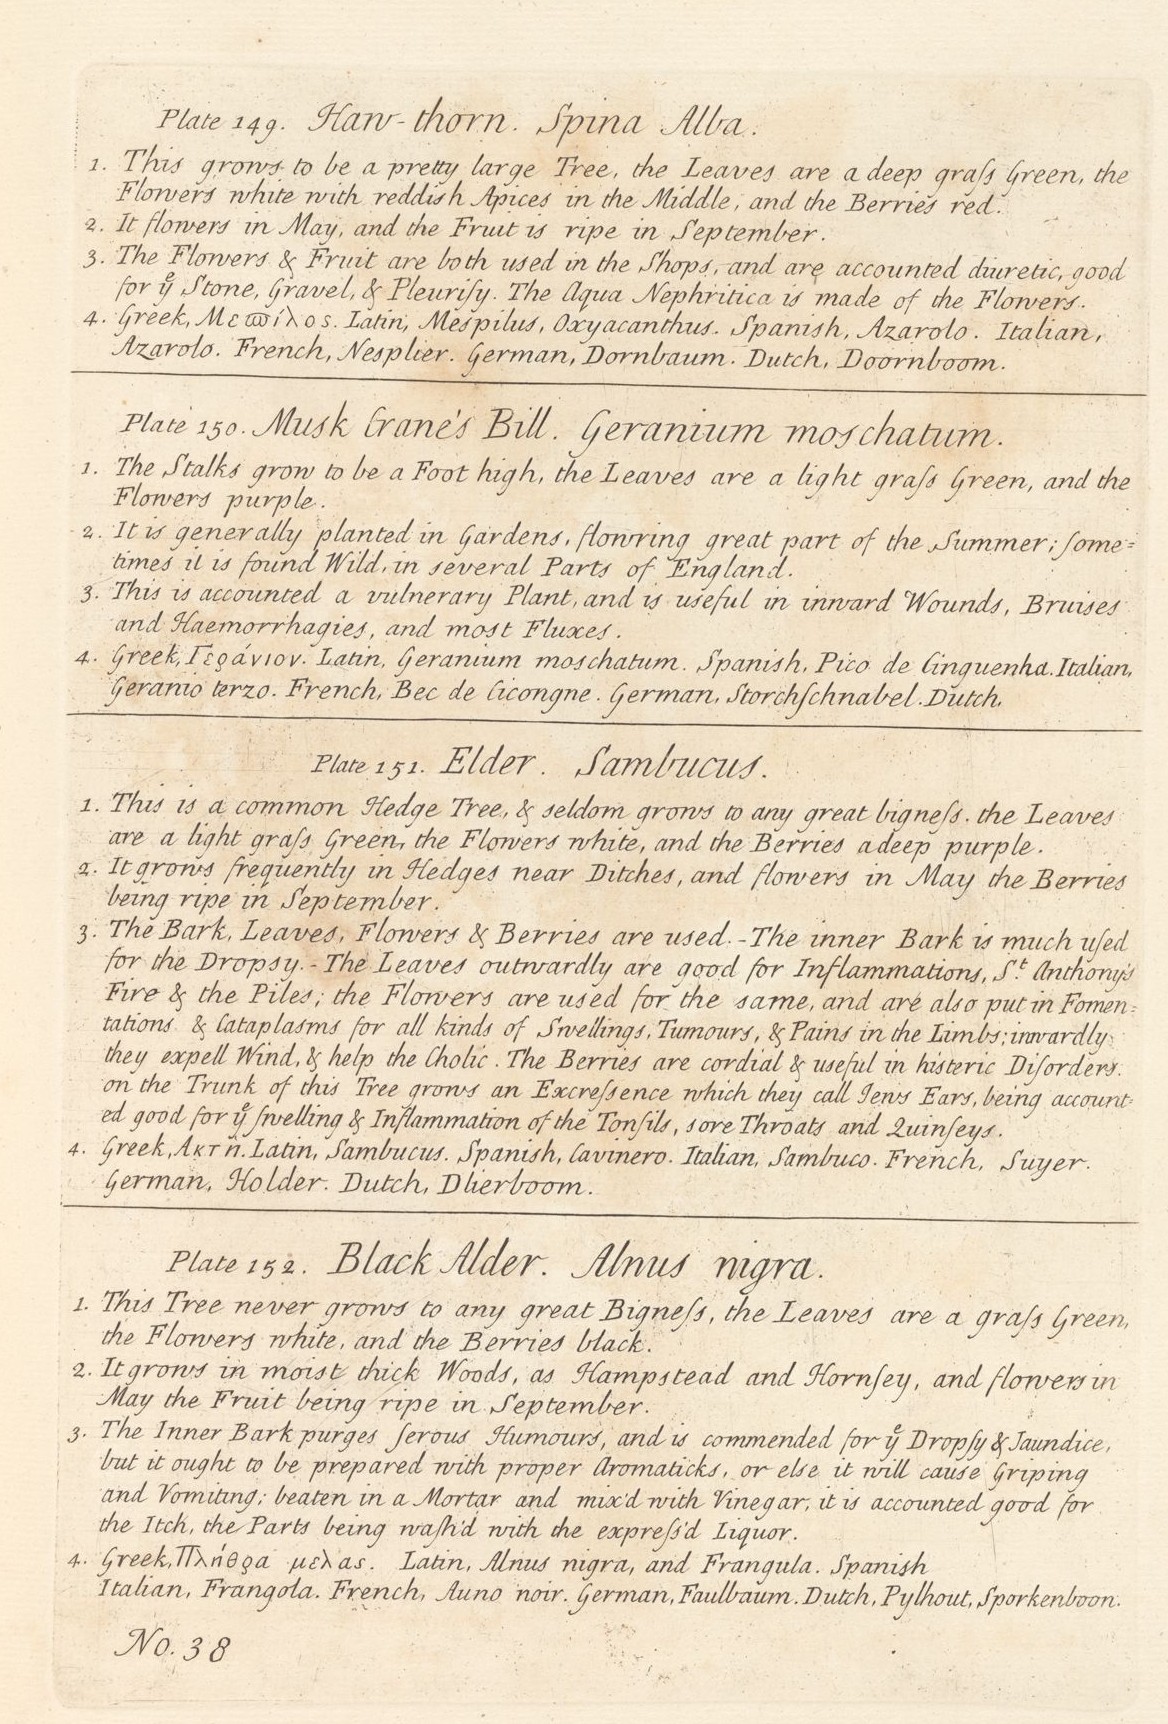 Plate 149. Haw-thorn. Spina Alba.
1. This grows to be a pretty large Tree, the Leaves are a deep graſs Green, the
Flowers white with reddish Apices in the Middle, and the Berries red.
2. It flowers in May, and the Fruit is ripe in September.
3. The Flowers & Fruit are both used in the Shops, and are accounted diuretic, good
for yͤ Stone, Gravel, & Pleuriſy. The Aqua Nephritica is made of the Flowers.
4. Greek, Μεϖίλος. Latin, Mespilus, Oxyacanthus. Spanish, Azarolo. Italian,
Azarolo. French, Nesplier. German, Dornbaum. Dutch, Doornboom.
Plate 150. Musk Crane's Bill. Geranium moschatum.
1. The Stalks grow to be a Foot high, the Leaves are a light graſs Green, and the
Flowers purple.
2. It is generally planted in Gardens, flowring great part of the Summer; ſome=
times it is found Wild, in several Parts of England.
3. This is accounted a vulnerary Plant, and is useful in inward Wounds, Bruises
and Haemorrhagies, and most Fluxes.
4. Greek, Γεράνιον. Latin, Geranium moschatum. Spanish, Pico de Cinguenha. Italian,
Geranio terzo. French, Bec de Cicongne. German, Storchſchnabel. Dutch,
Plate 151. Elder. Sambucus.
1. This is a common Hedge Tree, & seldom grows to any great bigneſs. the Leaves
are a light graſs Green, the Flowers white, and the Berries a deep purple.
2. It grows frequently in Hedges near Ditches, and flowers in May the Berries
being ripe in September.
3. The Bark, Leaves, Flowers & Berries are used. - The inner Bark is much uſed
for the Dropsy. - The Leaves outwardly are good for Inflammations, Sᵗ. Anthony's
Fire & the Piles; the Flowers are used for the same, and are also put in Fomen=
tations & Cataplasms for all kinds of Swellings, Tumours, & Pains in the Limbs; inwardly
they expell Wind, & help the Cholic. The Berries are cordial & useful in histeric Diſorders.
on the Trunk of this Tree grows an Excreſsence which they call Jews Ears, being account=
ed good for yͤ ſwelling & Inflammation of the Tonſils, sore Throats and Quinſeys.
4. Greek, Ακτή. Latin, Sambucus. Spanish, Cavinero. Italian, Sambuco. French, Suyer.
German, Holder. Dutch, Dlierboom.
Plate 152. Black Alder. Alnus nigra.
1. This Tree never grows to any great Bigneſs, the Leaves are a graſs Green,
the Flowers white, and the Berries black.
2. It grows in moist thick Woods, as Hampstead and Hornſey, and flowers in
May the Fruit being ripe in September.
3. The Inner Bark purges ſerous Humours, and is commended for yͤ Dropſy & Jaundice,
but it ought to be prepared with proper Aromaticks, or else it will cause Griping
and Vomiting; beaten in a Mortar and mix'd with Vinegar, it is accounted good for
the Itch, the Parts being waſh'd with the expreſs'd Liquor.
4. Greek, Πλήθρα μελας. Latin, Alnus nigra, and Frangula. Spanish
Italian, Frangola. French, Auno noir. German, Faulbaum. Dutch, Pylhout, Sporkenboon.
No. 38